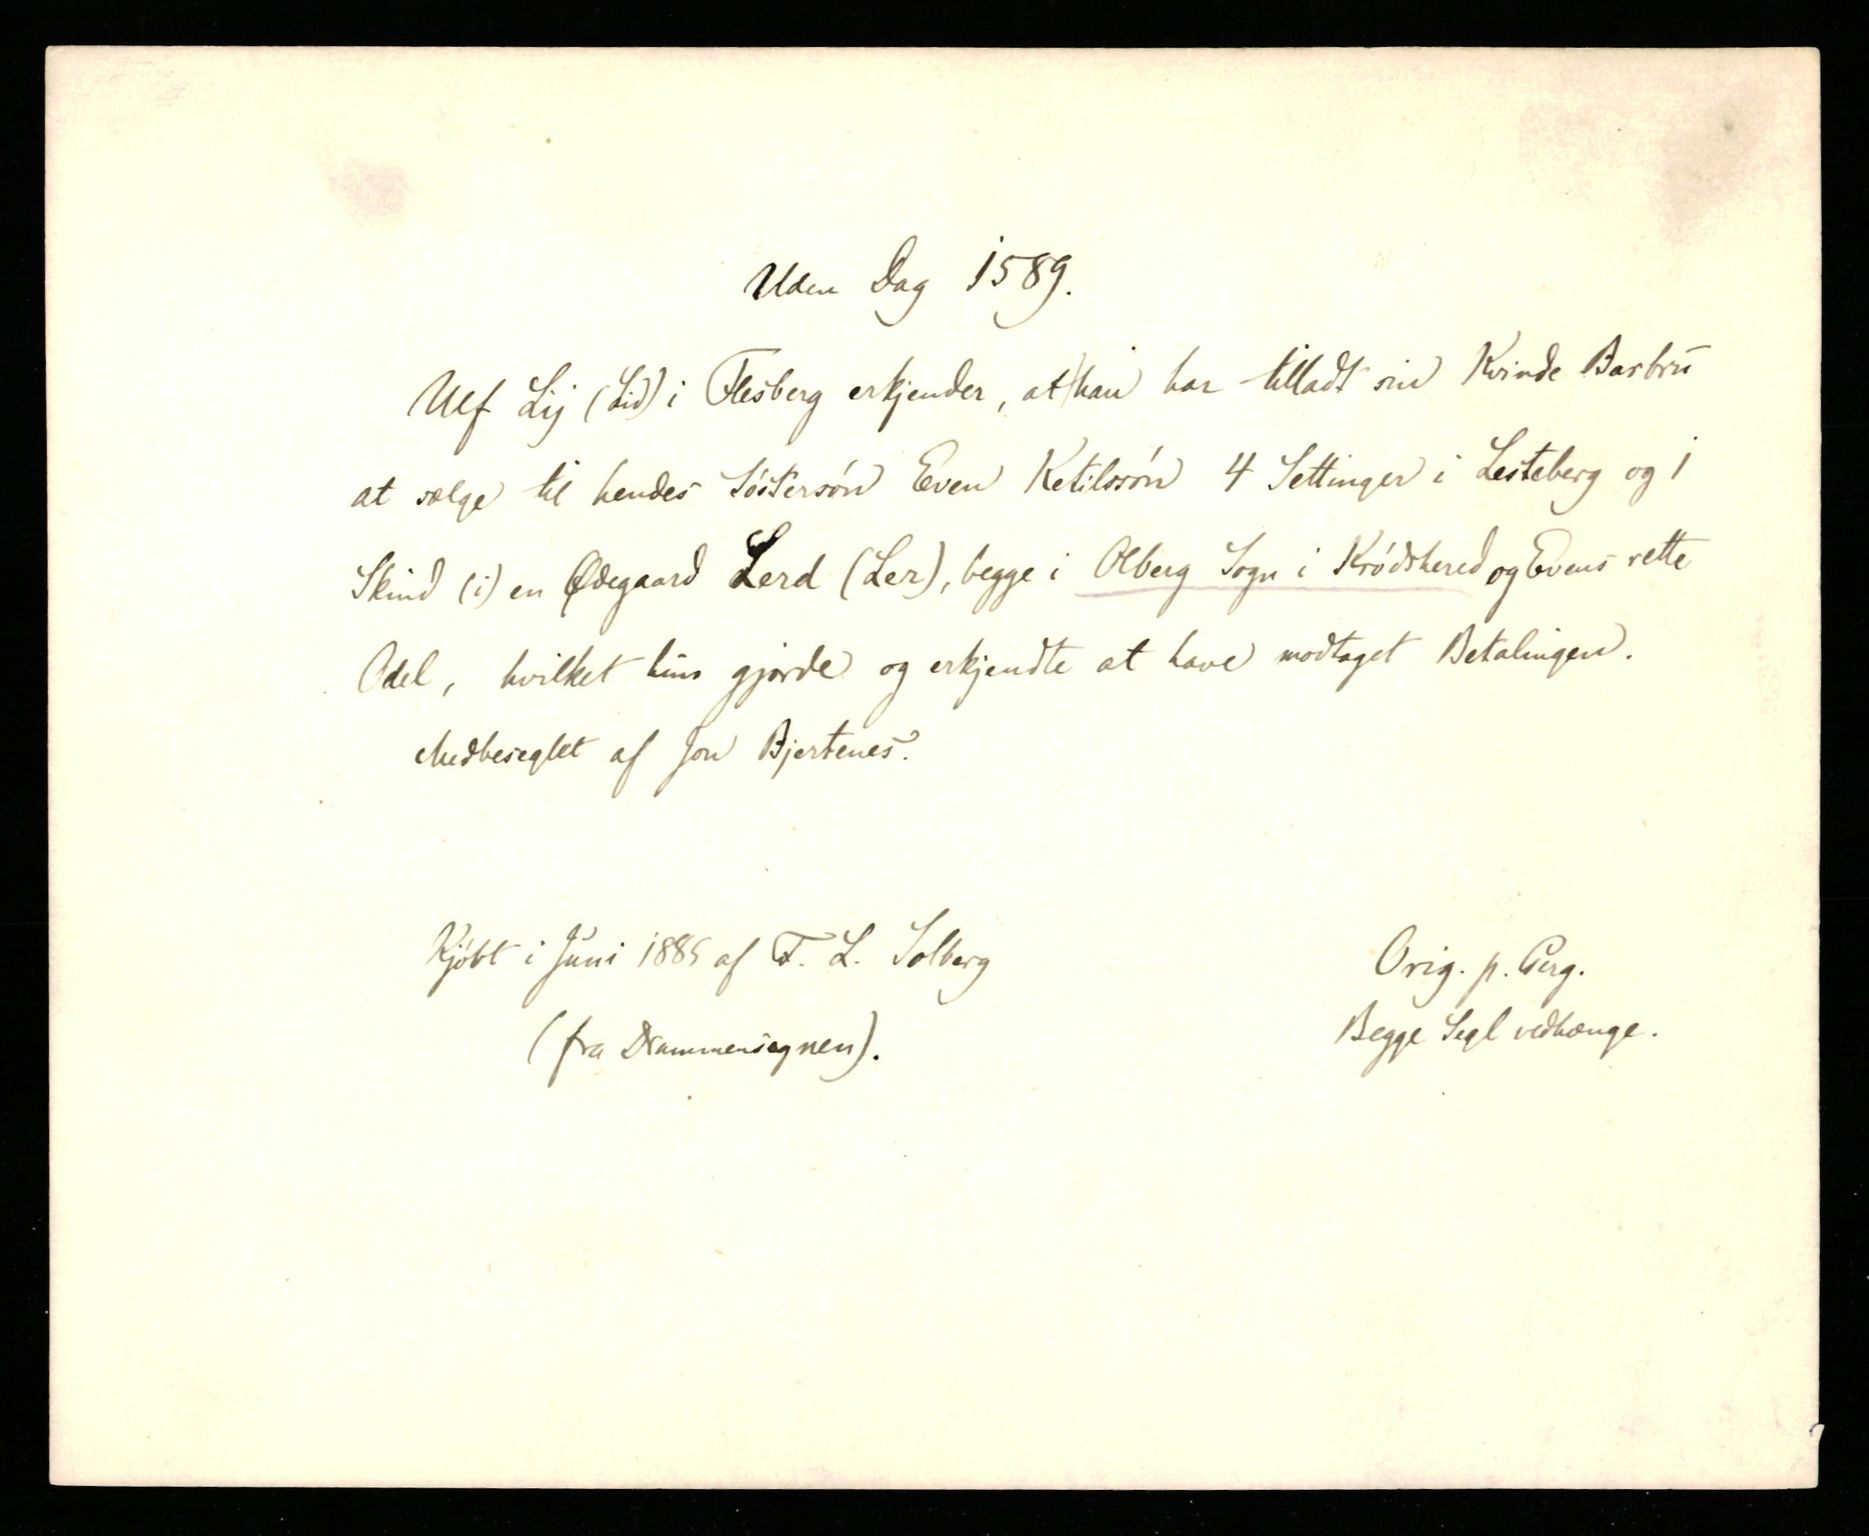 Uden Dag 1589.
Ulf Lij (Lid) i Flesberg erkjender, at han har tilladt sin Kvinde Barbru
at sælge til hendes Söstersön Even Ketilssön 4 Settinger i Lesteberg og 1
Skind (i) en Ødegaard Lerd (Ler), begge i Olberg Sogn i Krødshered og Evens rette
Odel, hvilket hun gjorde og erkjendte at have modtaget Betalingen.
Medbeseglet af Jon Bjertenes.
Kjöbt i Juni 1885 af F. L. Solberg
(fra Drammensegnen).
Orig. p. Perg.
Begge Segl vedhænge.